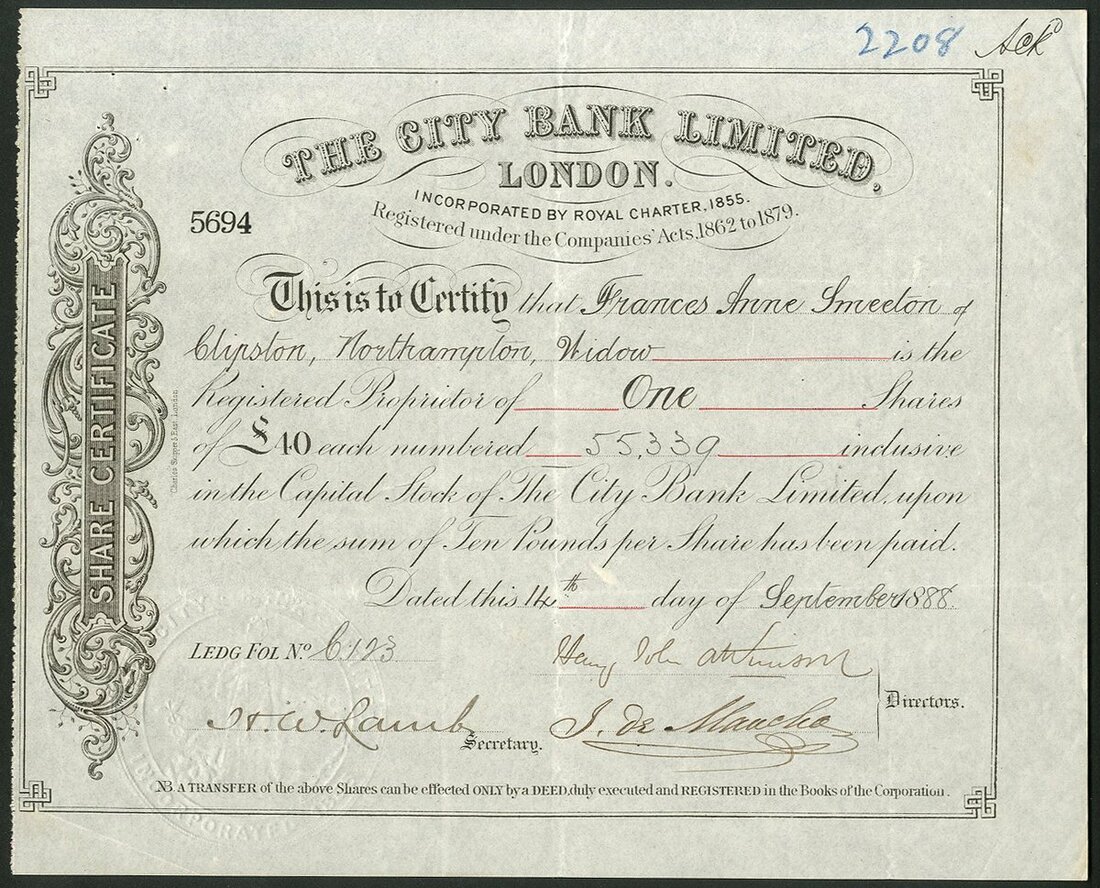 2208 Ack^d
THE CITY BANK LIMITED,
LONDON.
INCORPORATED BY ROYAL CHARTER, 1855.
Registered under the Companies' Acts, 1862 to 1879.
5694
SHARE CERTIFICATE
Charles Skipper & East, London
This is to Certify that Frances Anne Smeeton of
Clipston, Northampton, Widow is the
Registered Proprietor of One Shares
of £10 each numbered 55,339 inclusive
in the Capital Stock of The City Bank Limited, upon
which the sum of Ten Pounds per Share has been paid.
Dated this 14th day of September 1888.
LEDG FOL No. C123
Henry John Atkinson
H. W. Lamb
Secretary.
J. de Mancha
Directors.
NB. A TRANSFER of the above Shares can be effected ONLY by a DEED, duly executed and REGISTERED in the Books of the Corporation.
CITY
INCORPORATED